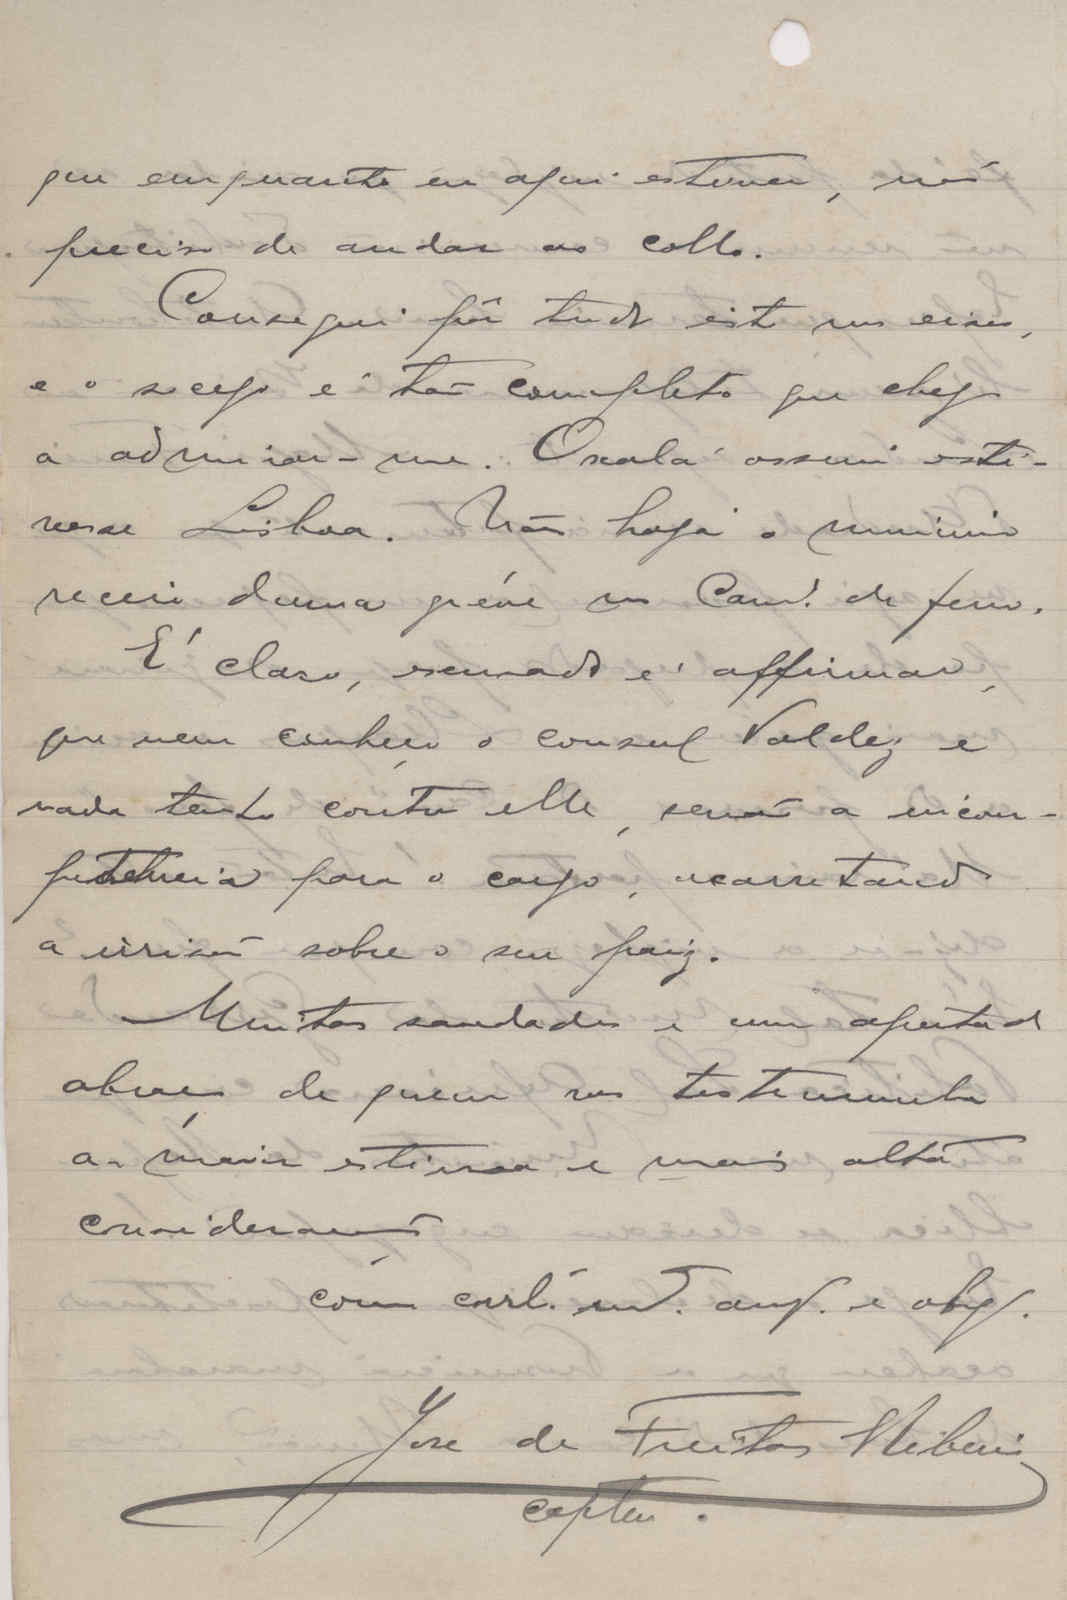 que emquanto eu aqui estiver, não
preciso de andar ao collo.
Consegui pôr tudo isto nos eixos,
e o socego é tão completo que chego
a admirar-me. Oxalá assim esti-
vesse Lisboa. Não haja o minimo
receio duma gréve no Cam.º de ferro.
É claro, escusado é affirmar,
que nem conheço o consul Valdez e
nada tenho contra elle, senão a incom-
petencia para o cargo, acarretando
a irrisão sobre o seu paiz.
Muitas saudades e um apertado
abraço de quem vos testemunha
a maior estima e mais alta
consideração
como corrl. am.º e obg.
José de Freitas Ribeiro
capten.